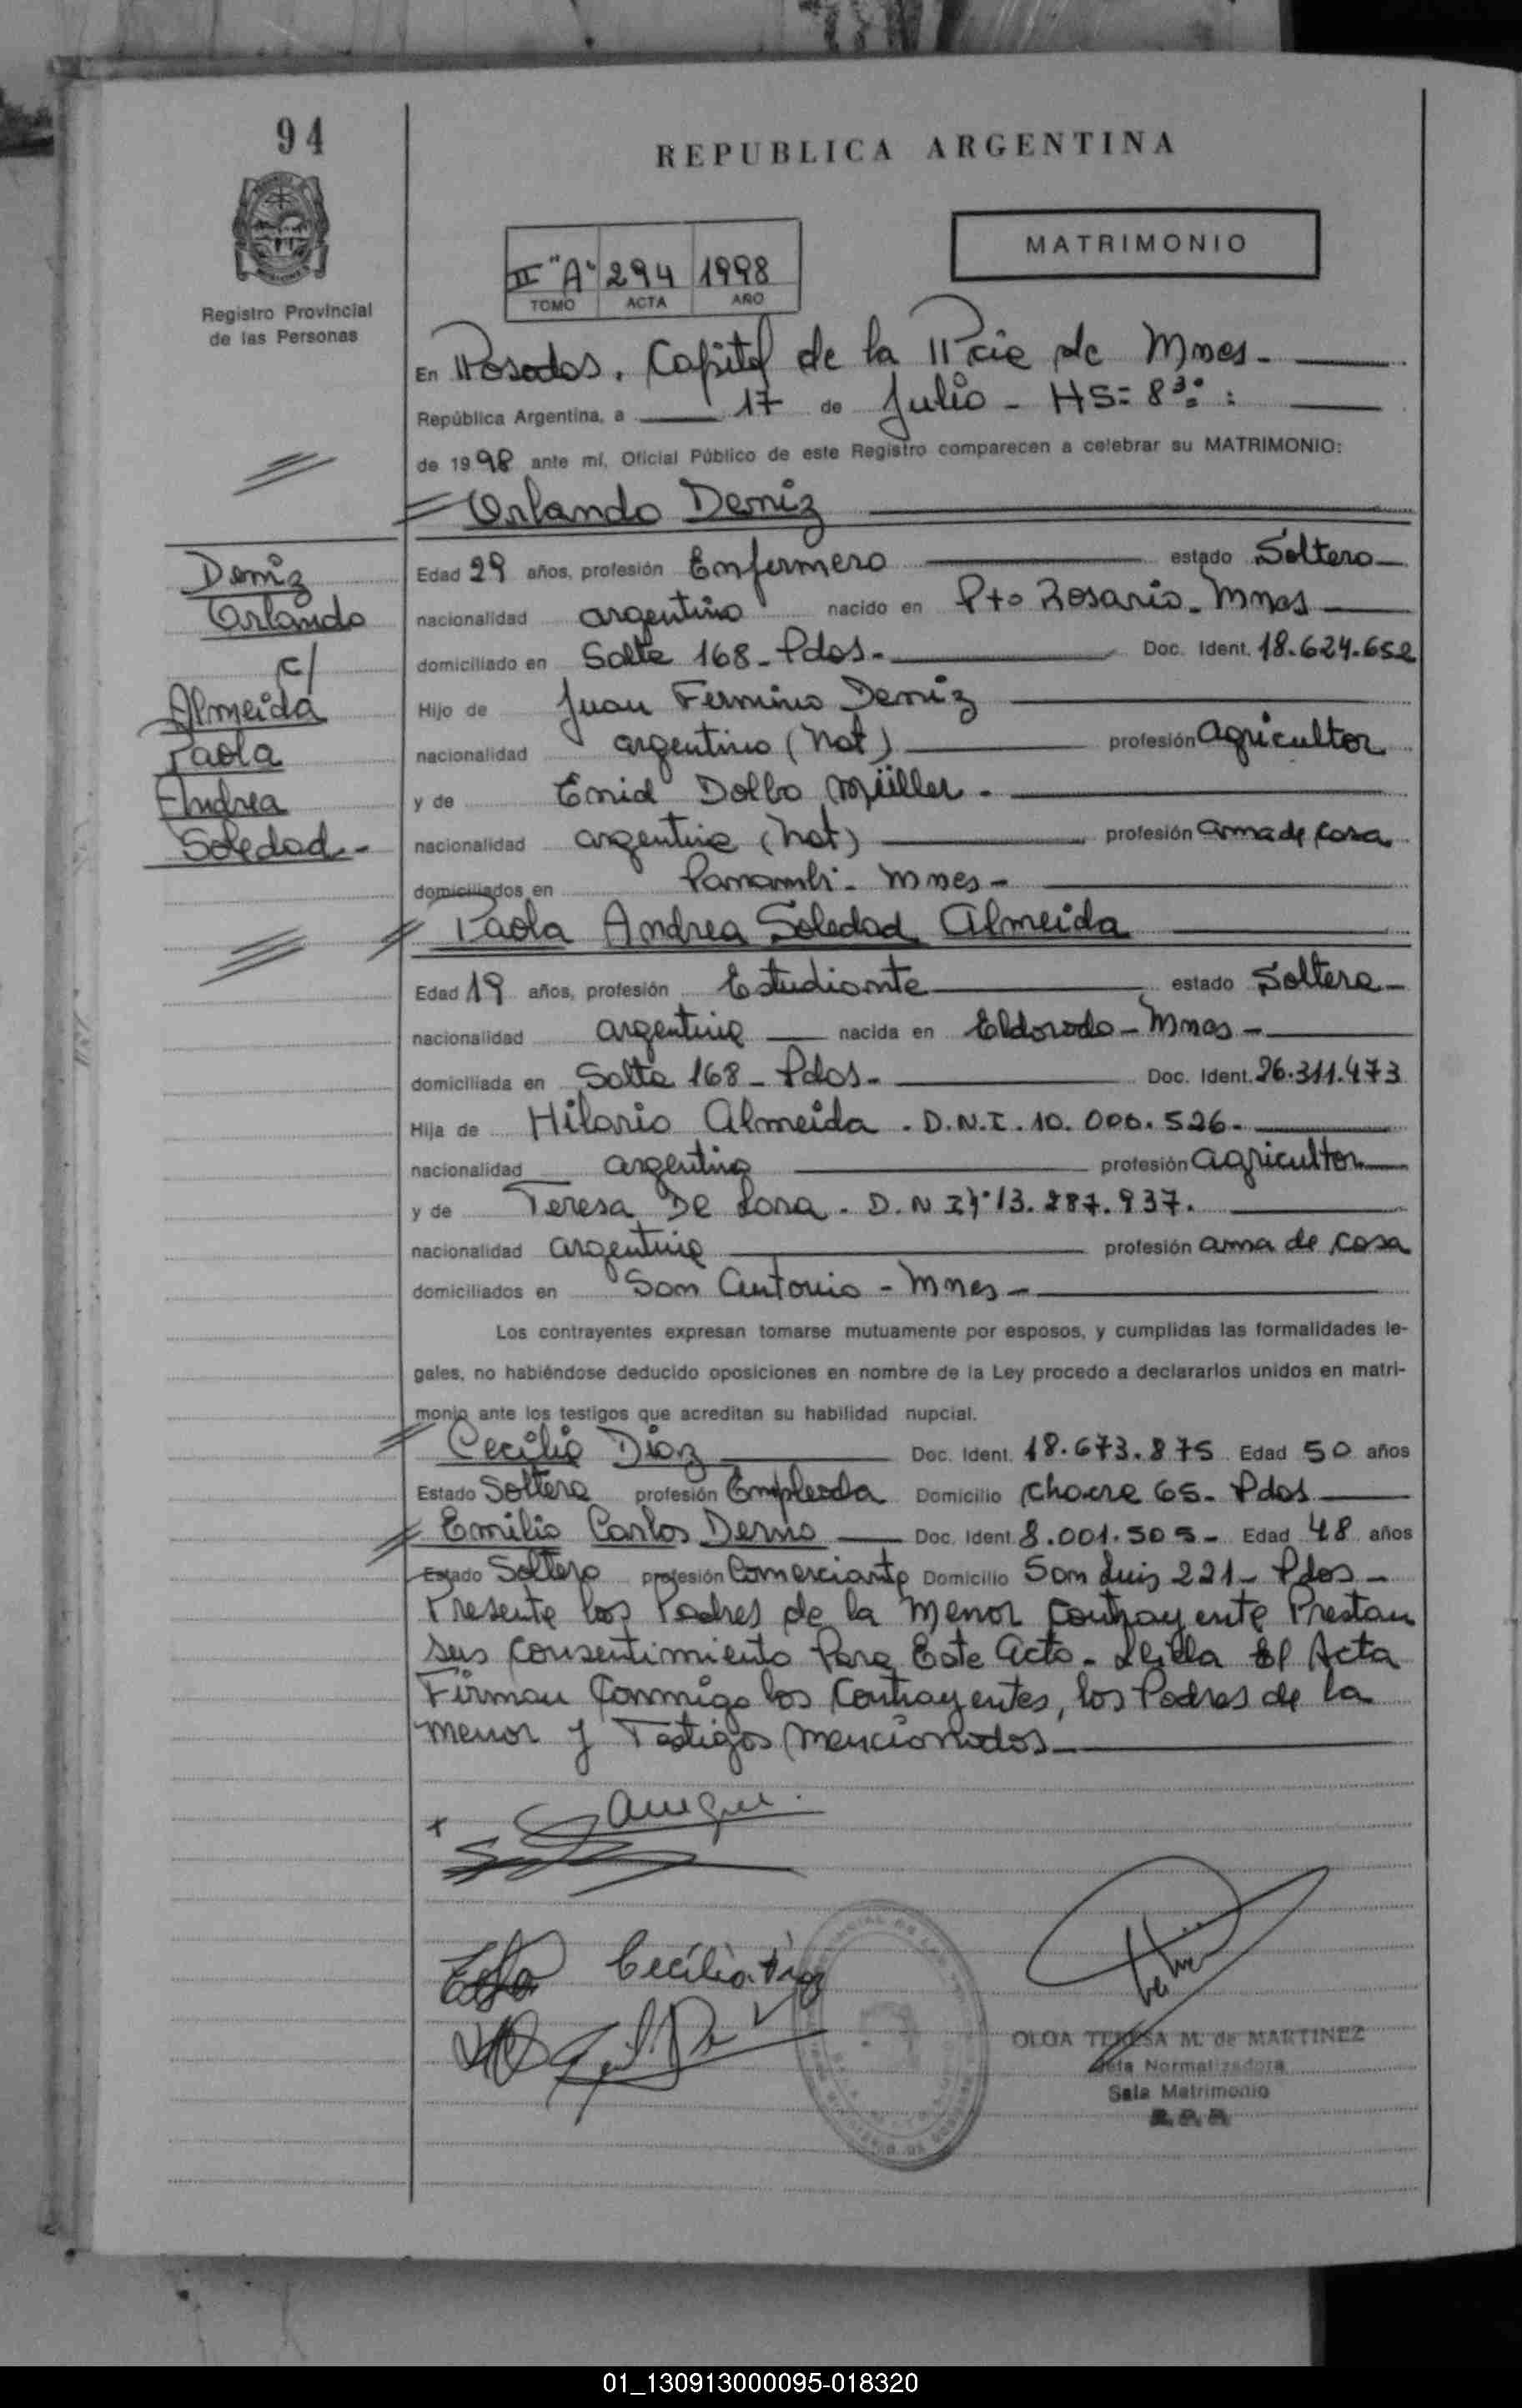 94
REPUBLICA ARGENTINA
MATRIMONIO
II "A" 294 1998
TOMO ACTA AÑO
Registro Provincial
de las Personas
En Posadas, Capital de la Pcie de Mnes-
República Argentina, a 17 de Julio - HS= 8³⁰:
de 1998 ante mí, Oficial Público de este Registro comparecen a celebrar su MATRIMONIO:
Orlando Demiz
Demiz
Orlando
c/
Almeida
Paola
Andrea
Soledad-
Edad 29 años, profesión Enfermero estado Soltero
nacionalidad argentino nacido en Pto Rosario - Mnes
domiciliado en Salta 168 - Pdas. Doc. Ident. 18.624.652
Hijo de Juan Fermino Demiz
nacionalidad argentino (Nat) profesión agricultor
y de Enid Müller -
nacionalidad argentina (Nat) profesión ama de casa
domiciliados en Panambi - Mnes -
Paola Andrea Soledad Almeida
Edad 19 años, profesión Estudiante estado Soltera
nacionalidad argentina nacida en Eldorado - Mnes -
domiciliada en Salta 168 - Pdas. Doc. Ident. 26.311.473
Hija de Hilario Almeida . D.N.I. 10.000.526.
nacionalidad argentino profesión agricultor
y de Teresa De . D.N.I 13.287.937.
nacionalidad argentina profesión ama de casa
domiciliados en San Antonio - Mnes -
Los contrayentes expresan tomarse mutuamente por esposos, y cumplidas las formalidades le-
gales, no habiéndose deducido oposiciones en nombre de la Ley procedo a declararlos unidos en matri-
monio ante los testigos que acreditan su habilidad nupcial.
Cecilia Diaz Doc. Ident. 18.673.875 Edad 50 años
Estado Soltera profesión Empleada Domicilio chacra 65 - Pdas
Emilio Carlos Doc. Ident. 8.001.505 - Edad 48 años
Estado Soltero profesión Comerciante Domicilio San Luis 221 - Pdas -
Presente los Padres de la menor contrayente Prestan
sus consentimiento Para Este acto - Leida El Acta
Firman Conmigo los Contrayentes, los Padres de la
menor y Testigos mencionados
Cecilia Diaz
OLGA TERESA M. de MARTINEZ
Jefa Normalizadora
Sala Matrimonio
01_130913000095-018320